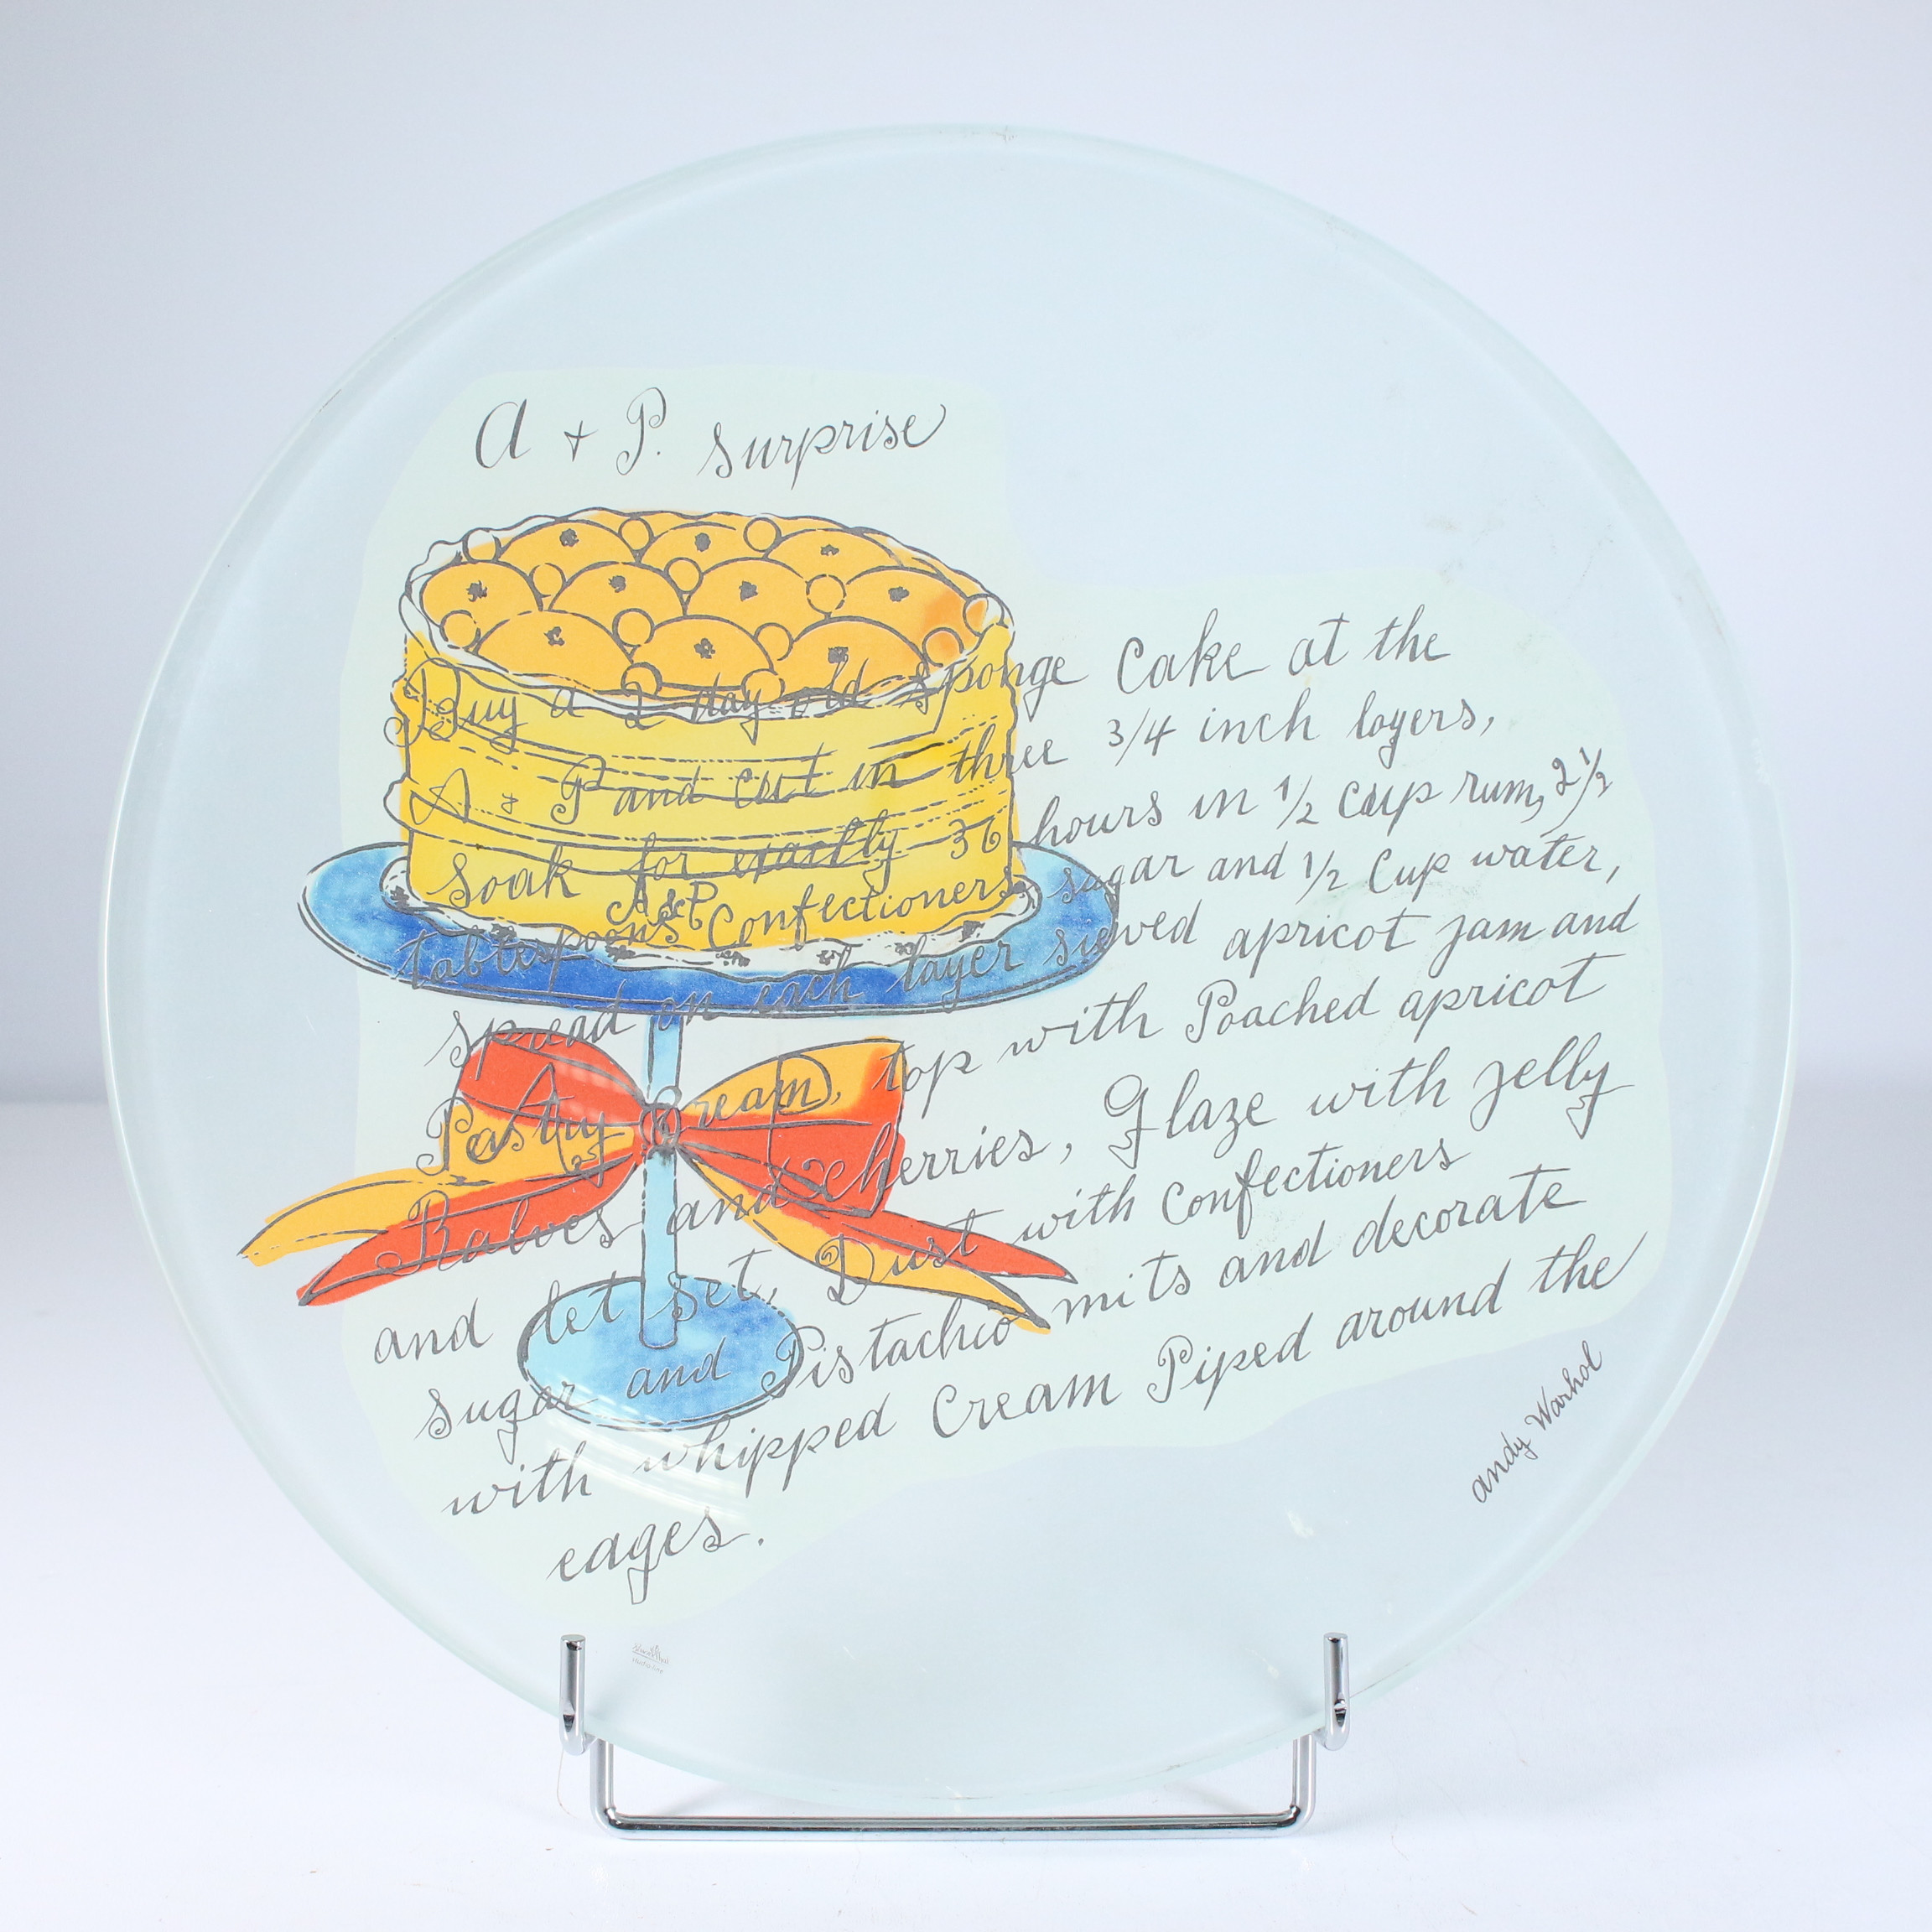 A + P. surprise
Buy a 2 day old sponge Cake at the
A & P and cut in three 3/4 inch layers,
soak for exactly 36 hours in 1/2 cup rum, 2 1/2
tablespoons A&P Confectioners sugar and 1/2 Cup water,
spread on each layer sieved apricot jam and
Pastry Cream, top with Poached apricot
Halves and cherries, Glaze with jelly
and let set, Dust with Confectioners
sugar and Pistachio mits and decorate
with whipped Cream Piped around the
eages.
andy Warhol